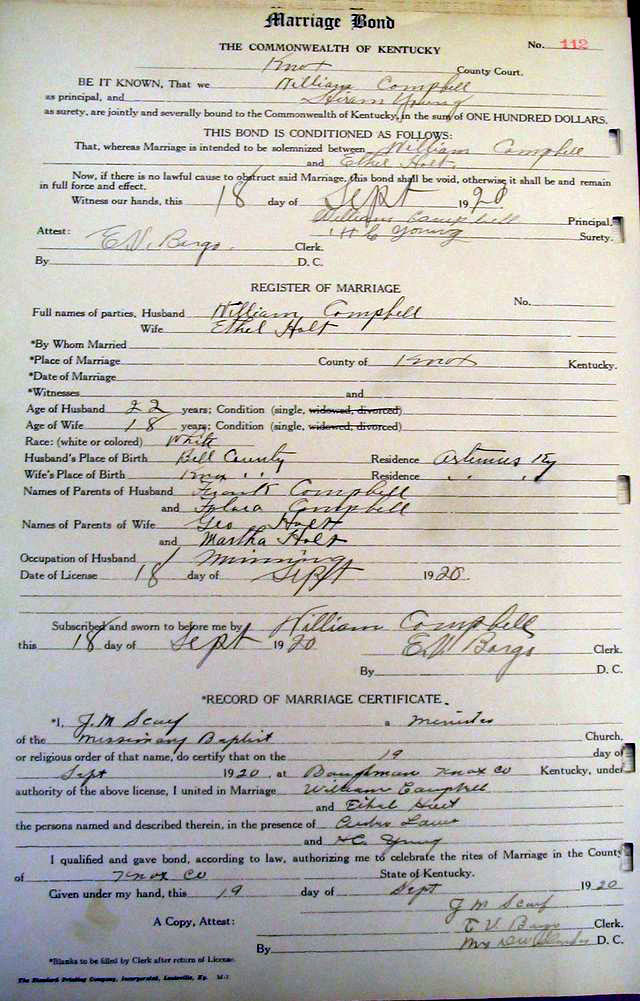 Marriage Bond
THE COMMONWEALTH OF KENTUCKY No. 112
Knox County Court.
BE IT KNOWN, That we William Campbell
as principal, and Hiram Young
as surety, are jointly and severally bound to the Commonwealth of Kentucky, in the sum of ONE HUNDRED DOLLARS.
THIS BOND IS CONDITIONED AS FOLLOWS:
That, whereas Marriage is intended to be solemnized between William Campbell
and Ethel Holt
Now, if there is no lawful cause to obstruct said Marriage, this bond shall be void, otherwise it shall be and remain
in full force and effect.
Witness our hands, this 18 day of Sept 1920
William Campbell Principal,
H C Young Surety.
Attest: E.V. Bargo. Clerk.
By D. C.
REGISTER OF MARRIAGE
No.
Full names of parties, Husband William Campbell
Wife Ethel Holt
*By Whom Married
*Place of Marriage County of Knox Kentucky.
*Date of Marriage
*Witnesses and
Age of Husband 22 years; Condition (single, widowed, divorced)
Age of Wife 18 years; Condition (single, widowed, divorced)
Race: (white or colored) White
Husband's Place of Birth Bell County Residence Artemus Ky
Wife's Place of Birth Knox " " Residence " "
Names of Parents of Husband Frank Campbell
and Campbell
Names of Parents of Wife Geo Holt
and Martha Holt
Occupation of Husband Minning
Date of License 18 day of Sept 1920.
Subscribed and sworn to before me by William Campbell
this 18 day of Sept 1920 E.V. Bargo Clerk.
By D. C.
*RECORD OF MARRIAGE CERTIFICATE.
*I, J.M Scarf a Minister
of the Missionary Baptist Church,
or religious order of that name, do certify that on the 19 day of
Sept 1920, at Baughman Knox Co Kentucky, under
authority of the above license, I united in Marriage William Campbell
and Ethel Holt
the persons named and described therein, in the presence of
and H.C. Young
I qualified and gave bond, according to law, authorizing me to celebrate the rites of Marriage in the County
of Knox Co State of Kentucky.
Given under my hand, this 19 day of Sept 1920
J M Scarf
A Copy, Attest: E V Bargo Clerk.
By D. C.
*Blanks to be filled by Clerk after return of License.
The Standard Printing Company, Incorporated, Louisville, Ky. M-7